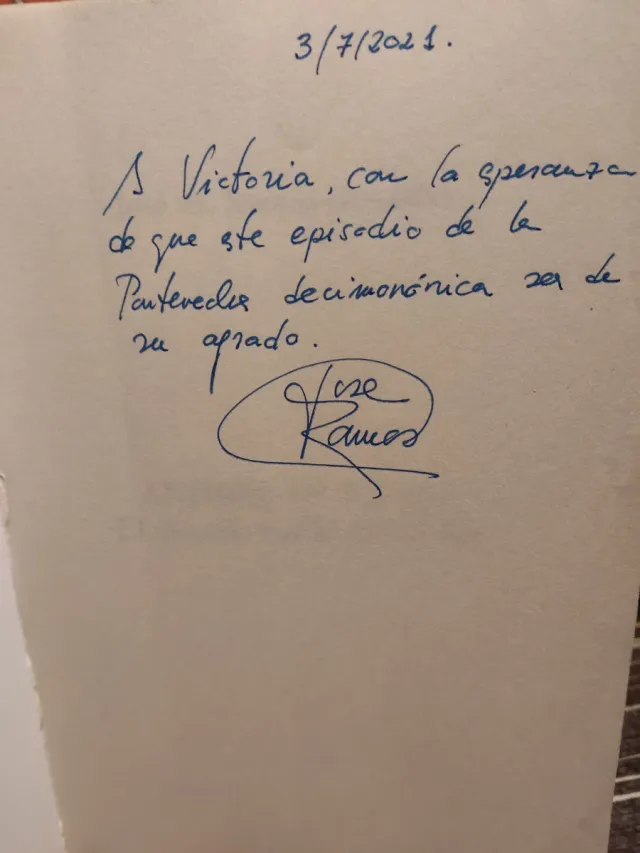 3/7/2021.
A Victoria, con la esperanza
de que este episodio de la
Pontevedra decimonónica sea de
su agrado.
Jose
Ramos